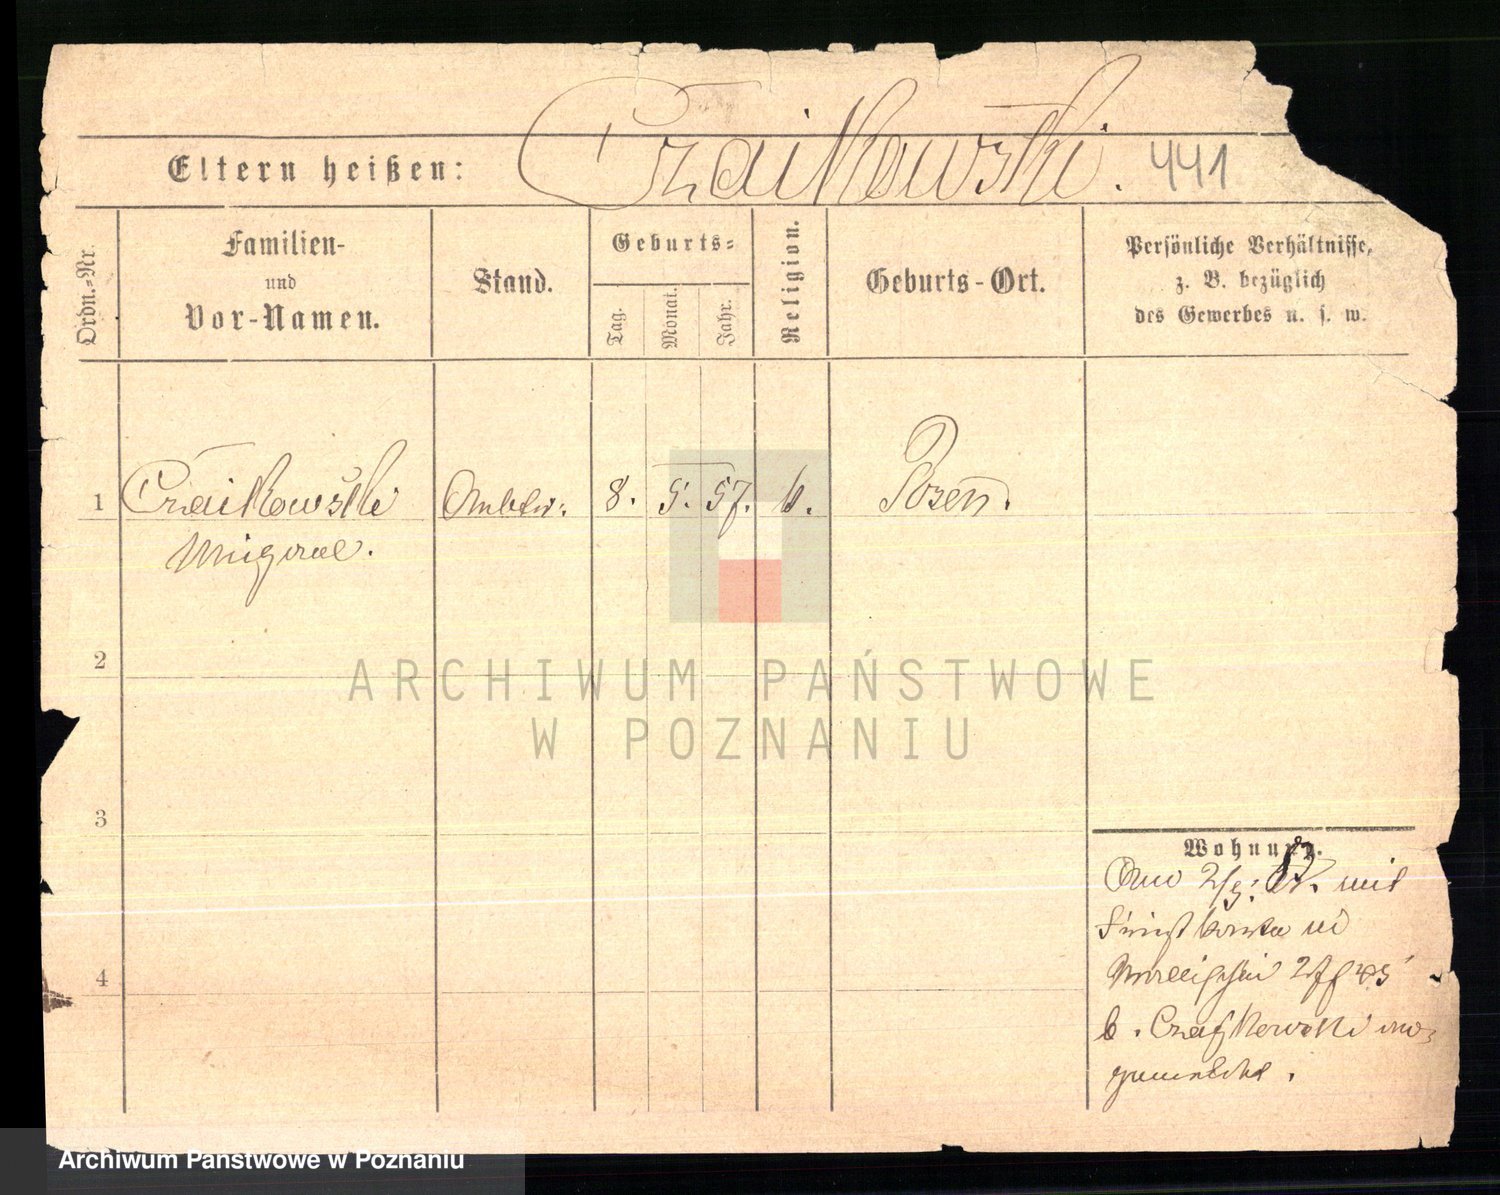 Czaikowski. 441
Eltern heißen:
Ordn.-Nr.
Familien-
und
Vor-Namen.
Stand.
Geburts-
Tag.
Monat.
Jahr.
Religion.
Geburts-Ort.
Persönliche Verhältnisse,
z. B. bezüglich
des Gewerbes u. s. w.
1 Czaikowski 8. 5. 57. k. Posen.
2
3
4
Wohnung.
mit
b. Czajkowski
ARCHIWUM PAŃSTWOWE
W POZNANIU
Archiwum Państwowe w Poznaniu